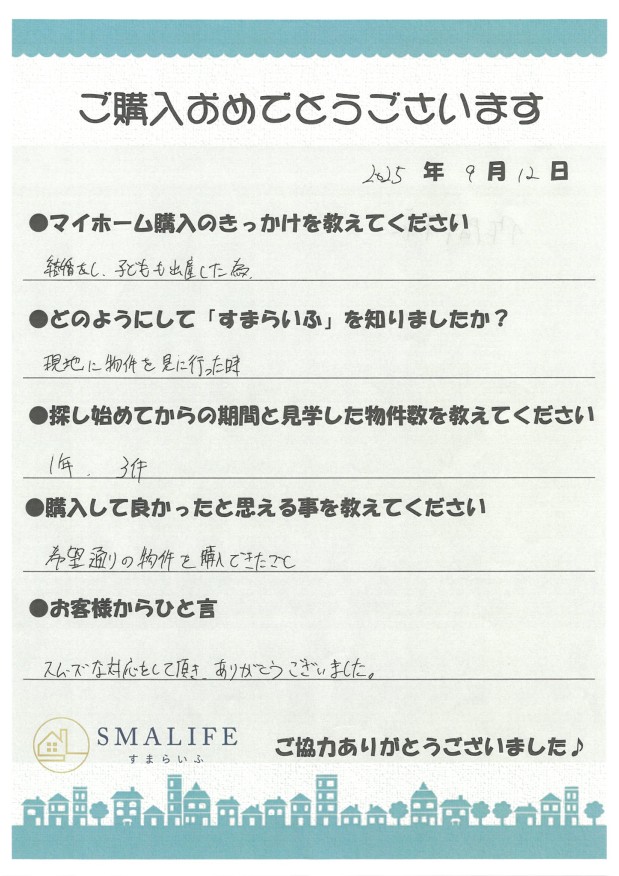 ご購入おめでとうございます
2025 年 9 月 12 日
●マイホーム購入のきっかけを教えてください
結婚をし、子どもも出産した為。
●どのようにして「すまらいふ」を知りましたか？
現地に物件を見に行った時
●探し始めてからの期間と見学した物件数を教えてください
1年 、 3件
●購入して良かったと思える事を教えてください
希望通りの物件を購入できたこと
●お客様からひと言
スムーズな対応をして頂き、ありがとうございました。
SMALIFE
すまらいふ
ご協力ありがとうございました♪